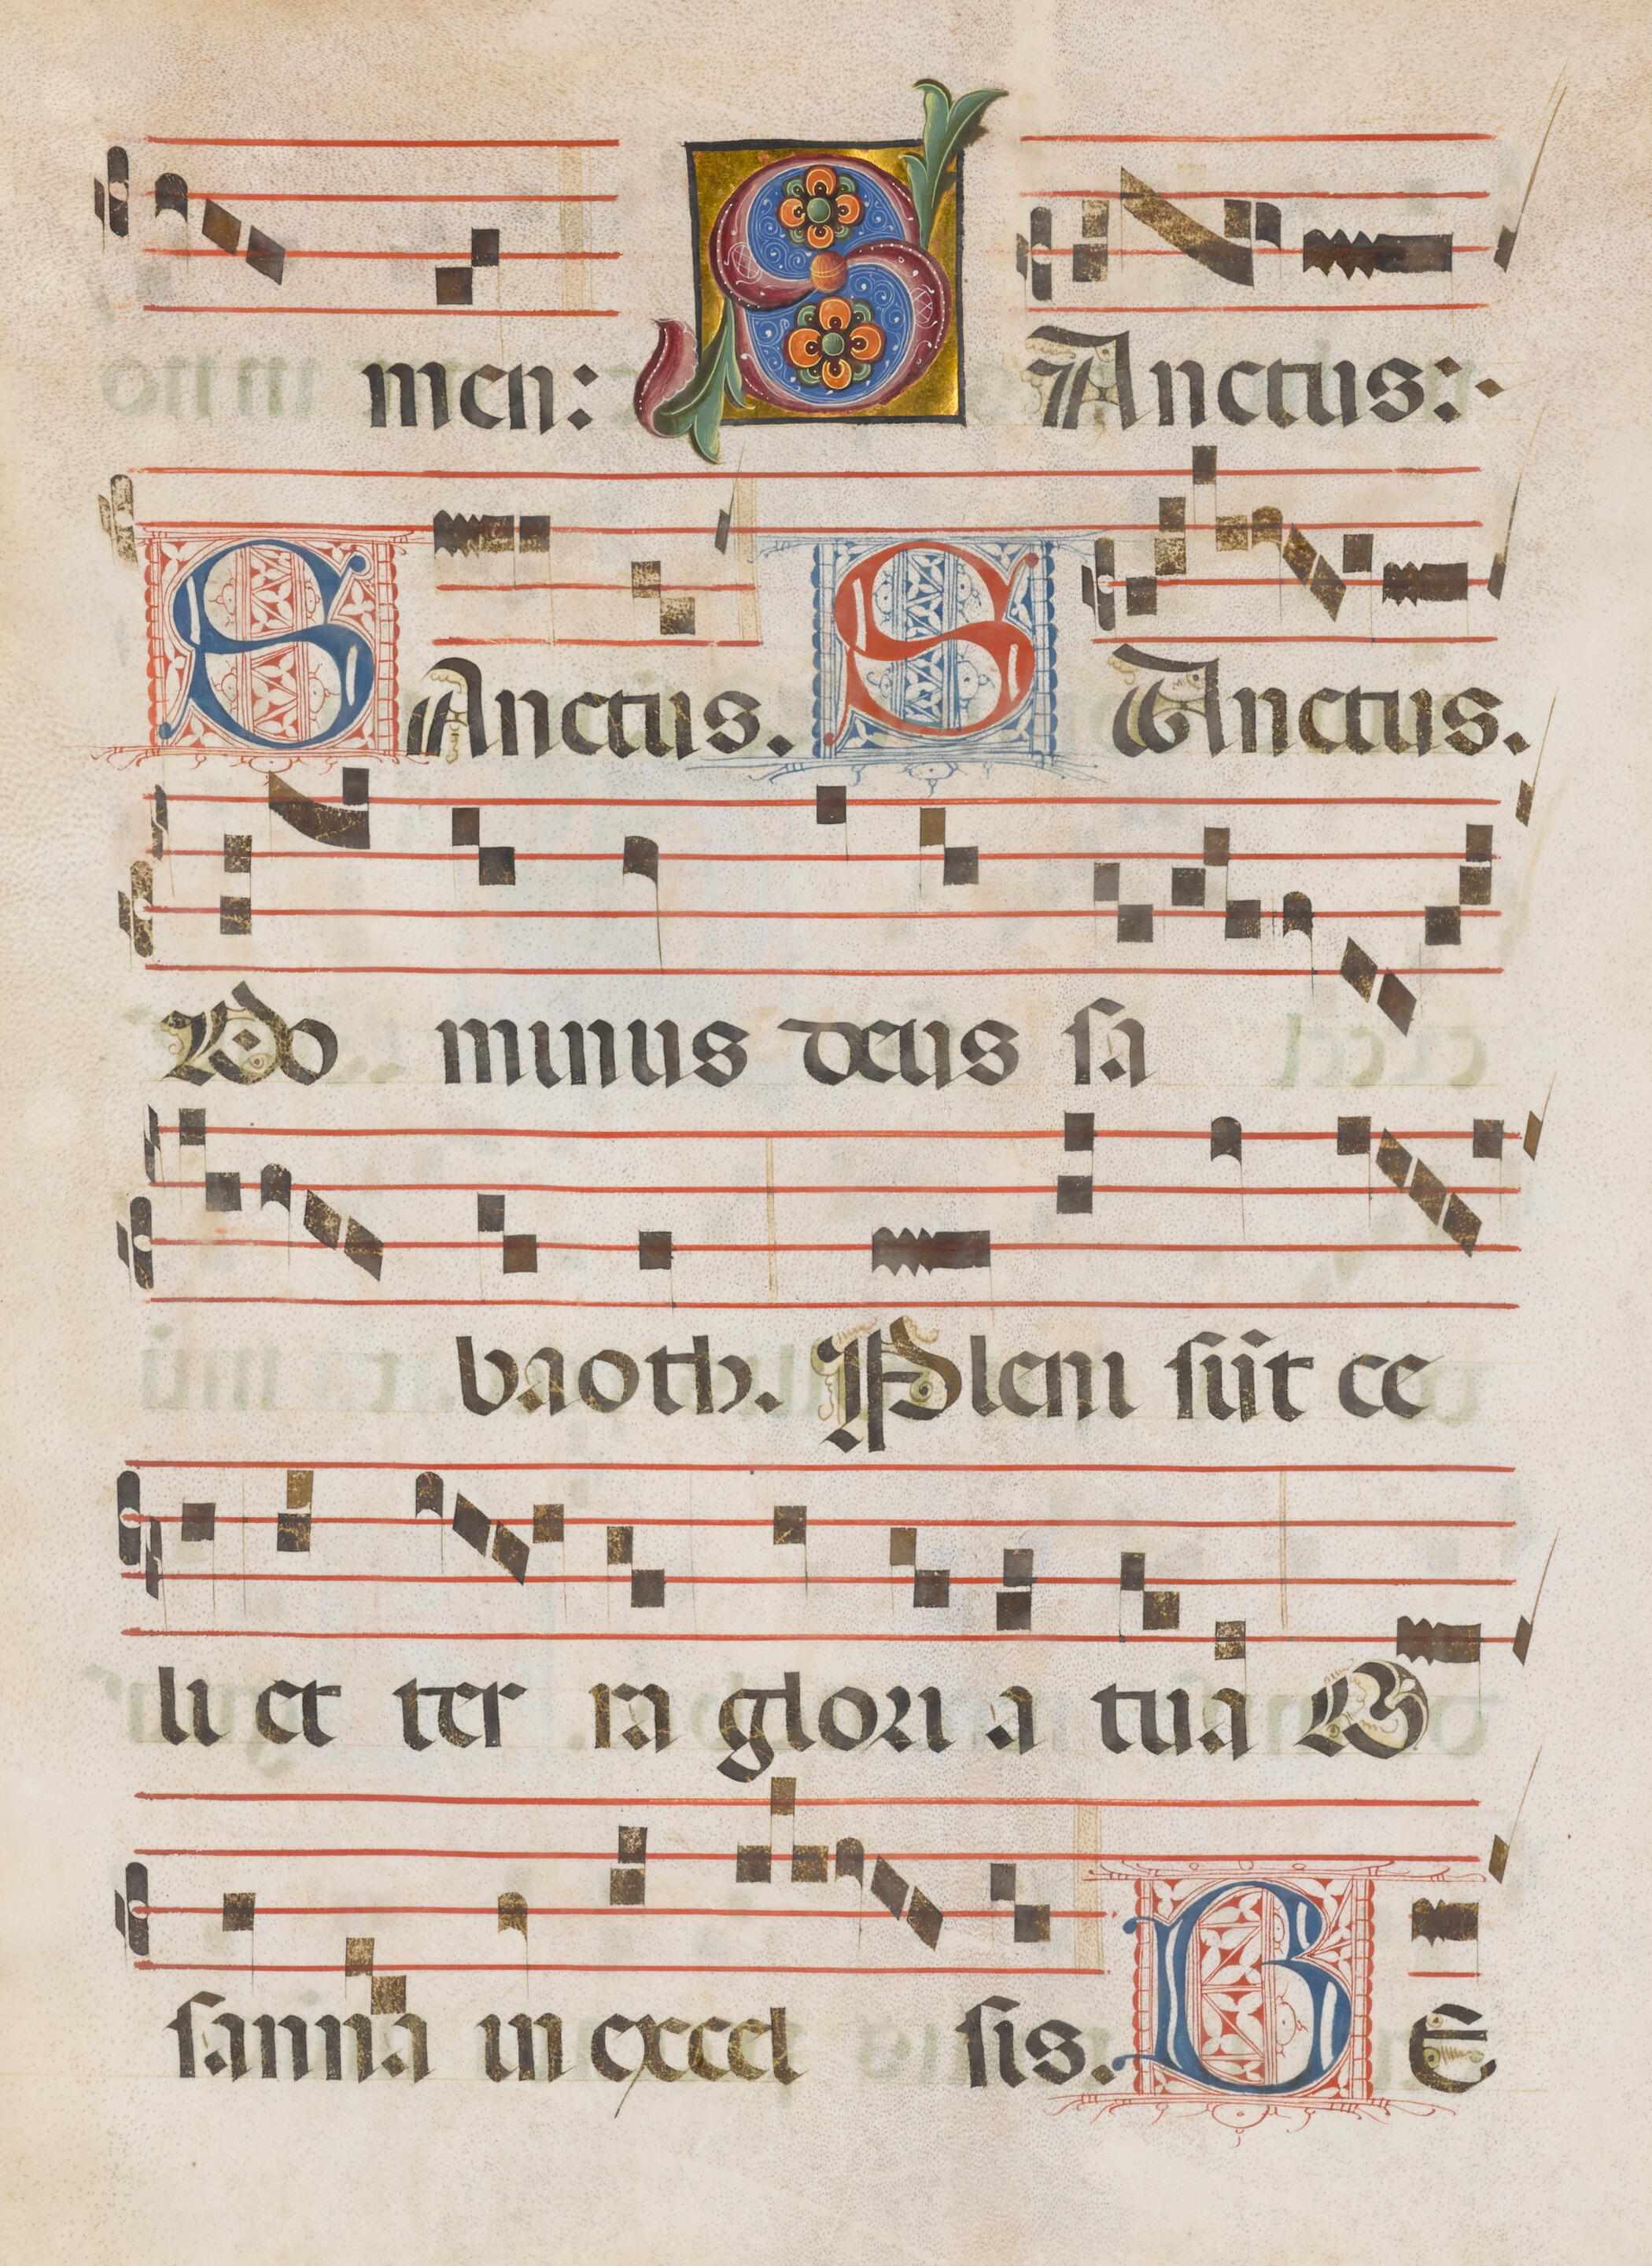 men: SAnctus:·
SAnctus. SAnctus.
Do minus deus sa
baoth. Pleni sūt ce
li et ter ra glori a tua O
sanna in excel sis. BE